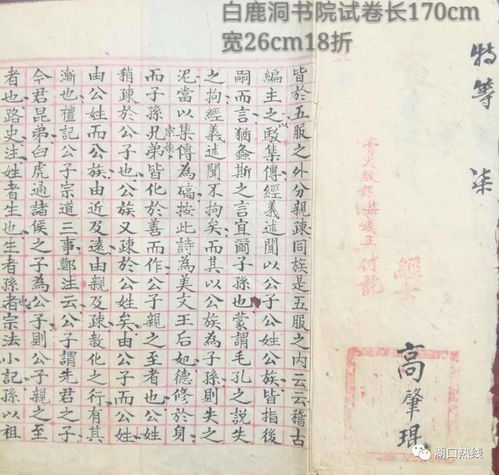 白鹿洞书院试卷长170cm
宽26cm18折
特等 柒
膏火錢叁柒錢正
付訖
經古
高肇琨
皆於五服之外分親疎同族是五服之内云云稽古
編主之駁集傳經義述聞以公子公姓公族皆指後
嗣而言猶螽斯之言宜爾子孫也蒙謂毛孔之説失
之拘經義述聞不拘矣而其以公族為子孫則失之
泥當以集傳為碻按此詩為美文王后妃德修於身
而子孫宗族兄弟皆化於善而作公子親之至者也公姓
稍疎於公子也公族又疎於公姓矣由公子而公姓
由公姓而公族由近及遠由親及疎教化之行有其
漸也禮記公子宗道三事鄭注云公子謂先君之子
今君昆弟白虎通諸侯之子為公子則公子親之至
者也路史注姓者生也生者孫也孫者宗法小記孫以祖
湖口热线